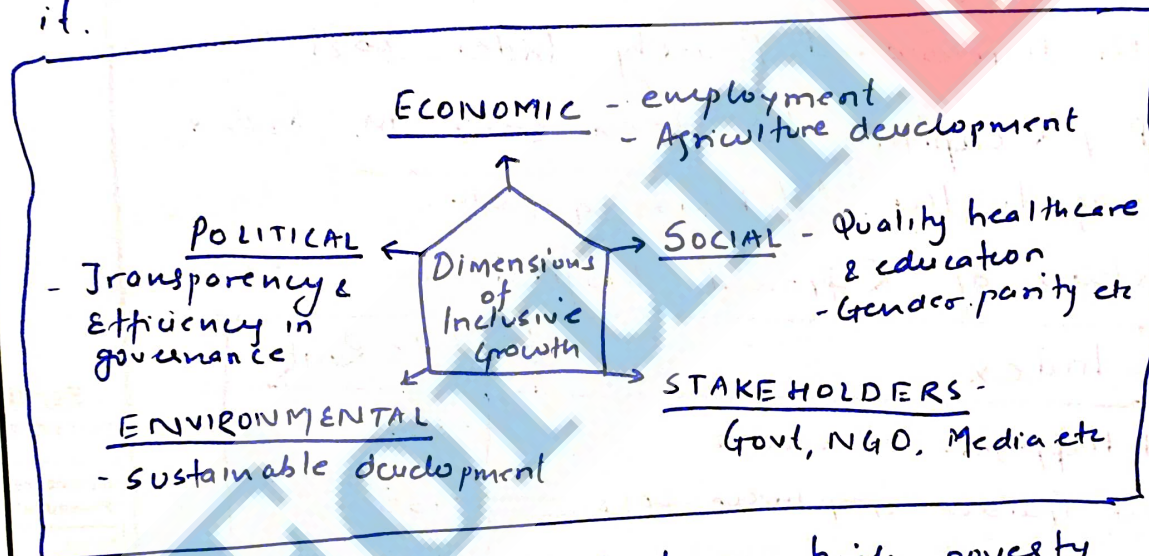 it.
ECONOMIC - employment
- Agriculture development
POLITICAL
- Transparency &
Efficiency in
governance
Dimensions
of
Inclusive
Growth
SOCIAL - Quality healthcare
& education
- Gender parity etc
ENVIRONMENTAL
- Sustainable development
STAKEHOLDERS -
Govt, NGO, Media etc.
poverty
Forum